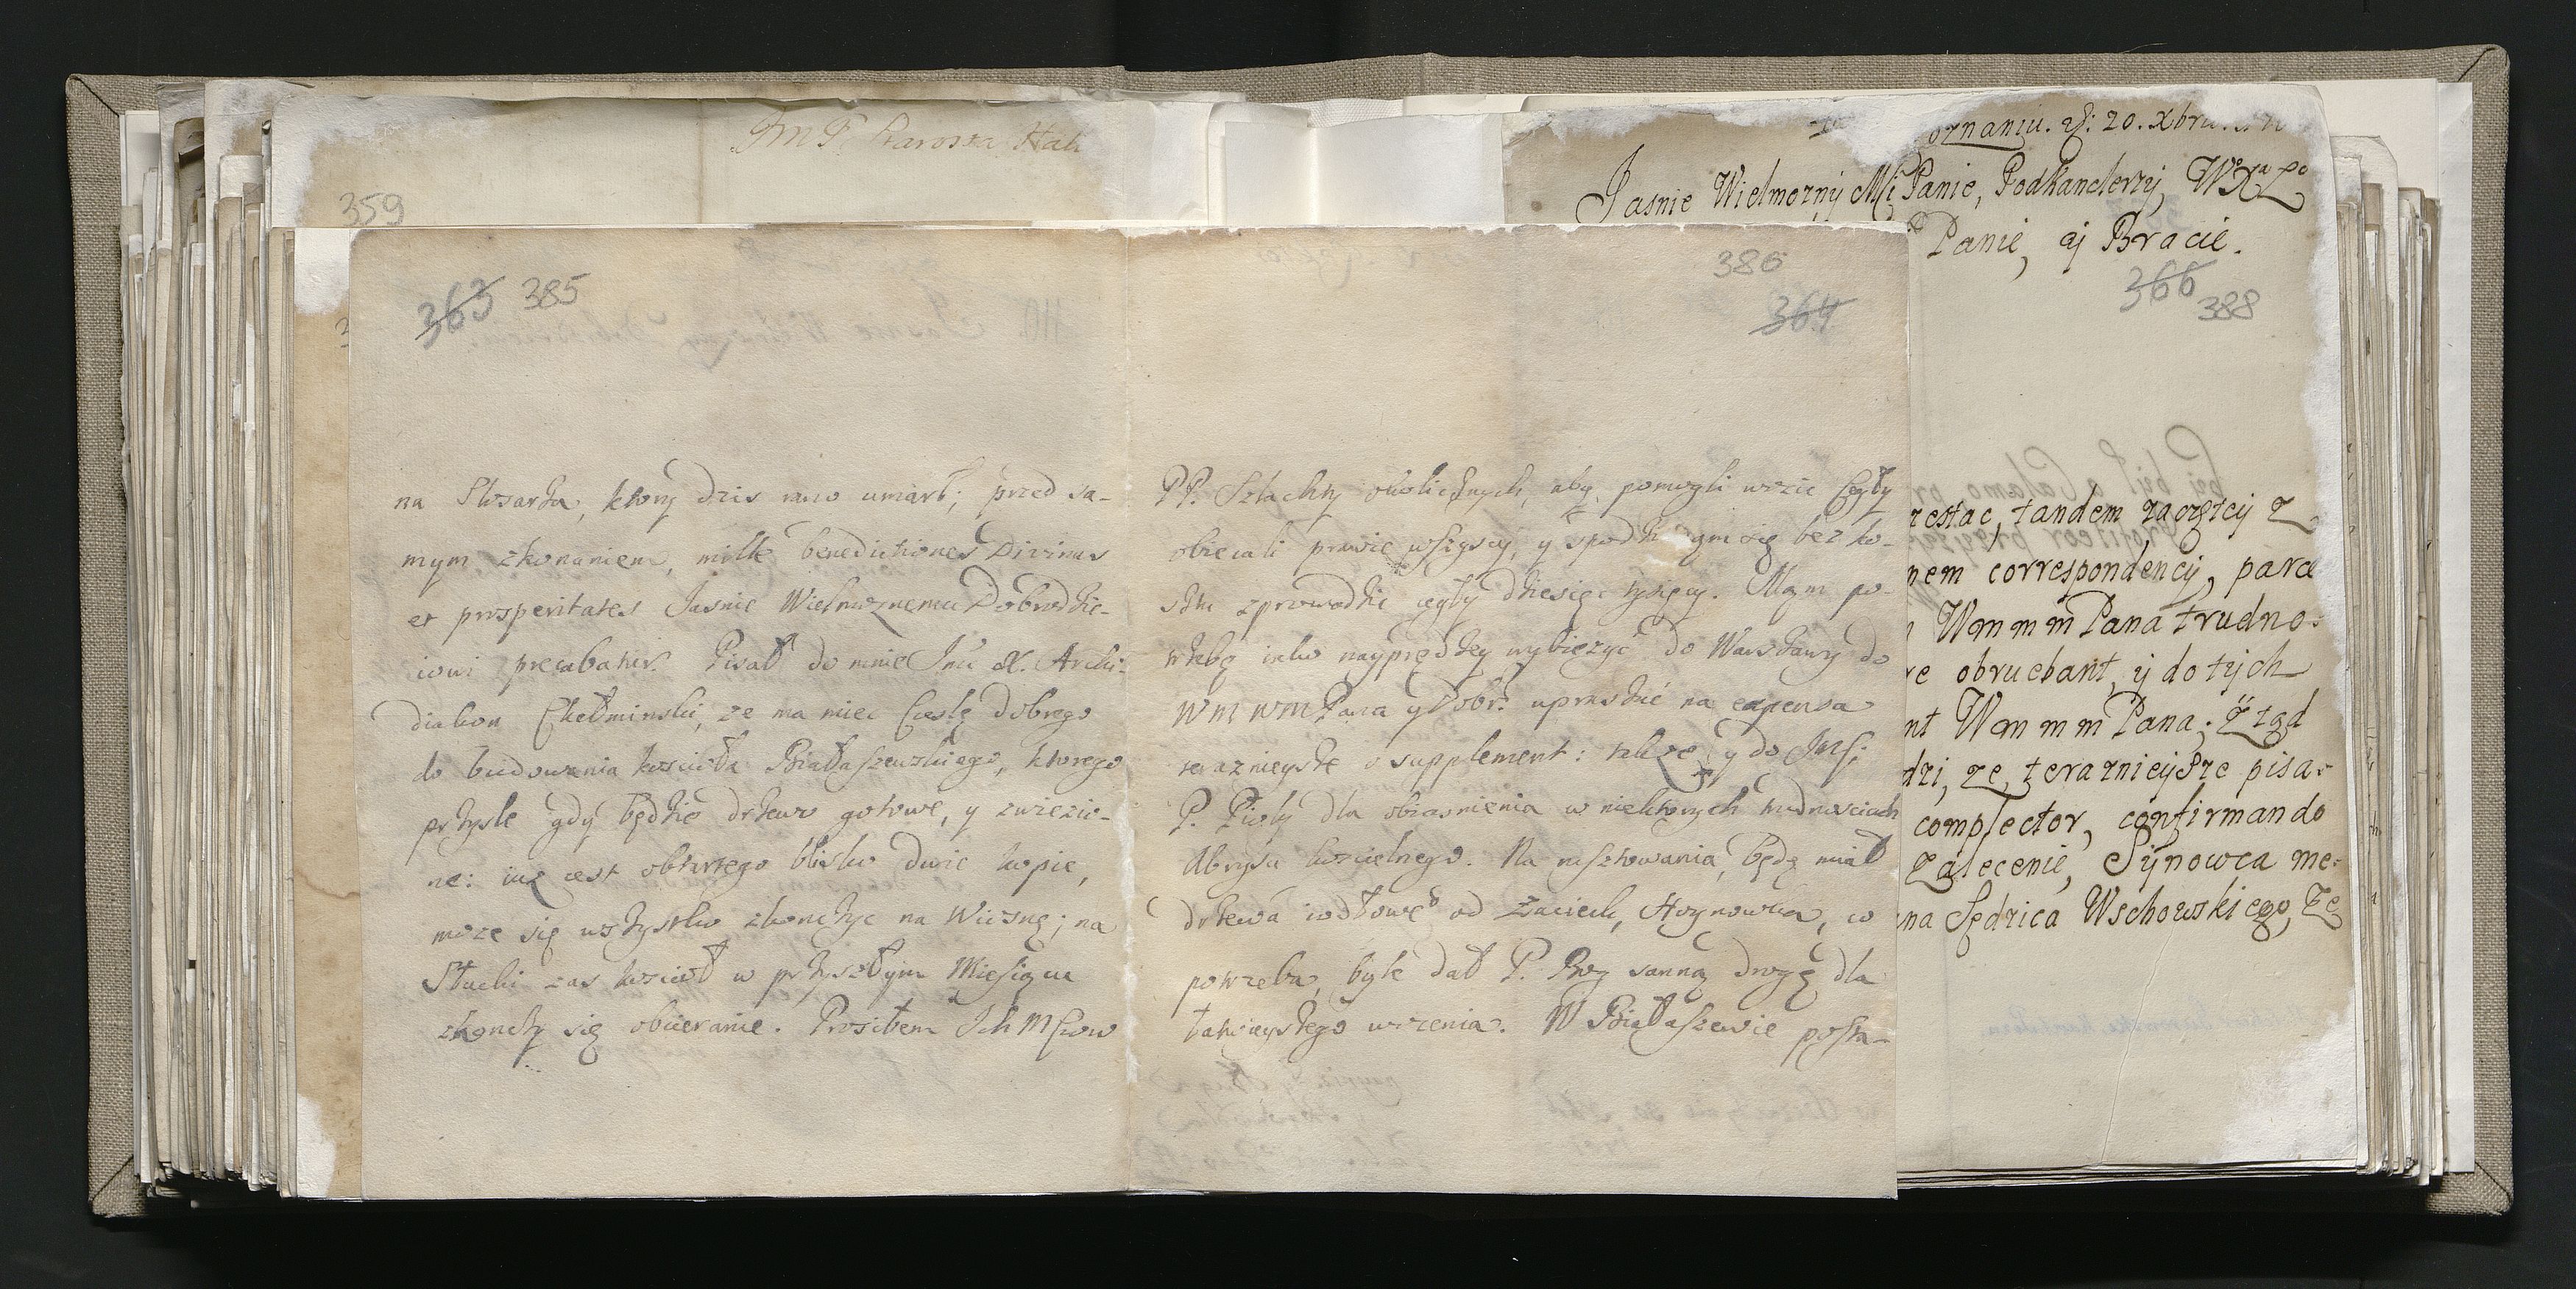 359
363 385
na Slosarza, ktory dzis rano umarł; przed sa-
mym zkonaniem, mille benedictiones Divinas
et prosperitates Jasnie Wielmoznemu Dobrodzie-
iowi precabatur. Pisał do mnie Jmć X. Archi-
diakon Chełminski, ze ma miec Ciesle dobrego
do budowania koscioła Białaszewskiego, ktorego
przysle gdy będzie drzewo gotowe, y zwiezio-
ne: iuz iest obtartego blisko dwie kopie,
moze się wszystko zkonczyc na Wiosnę; na
Stucki zas koscioł w przyszłym Miesiącu
zkonczy się obcieranie. Prosiłem Ich Mciow
386
364
PP. Szlachty okolicznych, aby pomogli wozic Cegły
obiecali prawie wszyscy, y się bez ko-
sztu zprowadzic cegły dziesięc tysięcy. Mam po-
trzebę iako nayprędzey wybiezyć do Warszawy do
WM WM Pana y Dobr: upraszać na expensa
teraznieysze o supplement: takze y do JMſ;
P. Pioły dla obiasnienia w niektorych trudnosciach
Abrysu koscielnego. Na rusztowania, będę miał
drzewa iodłowe od Hoynowka, co
potrzeba, byle dał P. Bog sanną drogę dla
łatwieyszego wozenia. W Białaszewie posta-
oznaniu. d: 20. Xbru.
Jasnie Wielmozny Mći Panie, Podkanclerzy, W X Lo
Panie, aj Bracie.
366
388
restac, tandem zaczętey z
nem correspondencij, parce
Wm m m Pana trudno:
re obruebant, ij do tych
nt Wm m m Pana; Ztąd
dzi, ze terazniejsze pisa:
complector, confirmando
zalecenie, Synowca me:
na Sędzica Wschowskiego, Ze